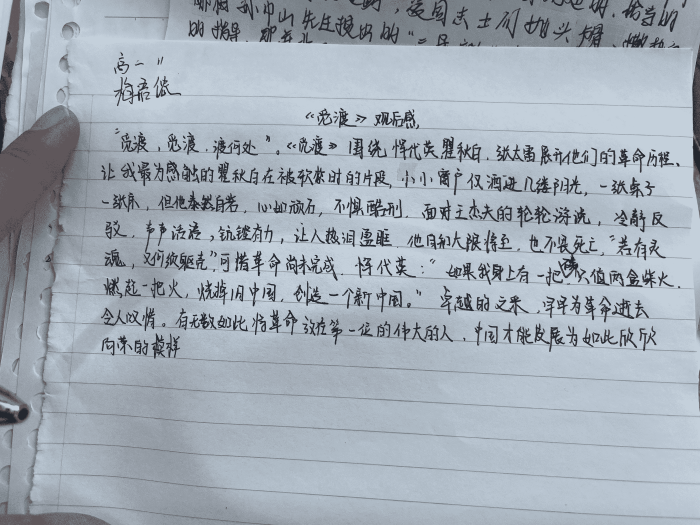 的指导
高一 11
《觅渡》观后感
"觅渡，觅渡，渡何处"。《觅渡》围绕恽代英瞿秋白、张太雷展开他们的革命历程。
让我最为感触的瞿秋白在被软禁时的片段，小小窗户仅洒进几缕阳光，一张桌子
一张床，但他泰然自若，心如顽石，不惧酷刑，面对王杰夫的轮轮游说，冷静反
驳，声声话语，铿锵有力，让人热泪盈眶，他目知大限将至，也不畏死亡，"若有灵
魂，又何须躯壳"，可惜革命尚未完成，恽代英："如果我身上有一把 只值两盒柴火，
燃起一把火，烧掉旧中国，创造一个新中国。"卓越的文采，字字为革命逝去
令人叹惜。有无数如此将革命放在第一位的伟大的人，中国才能发展为如此欣欣
向荣的模样